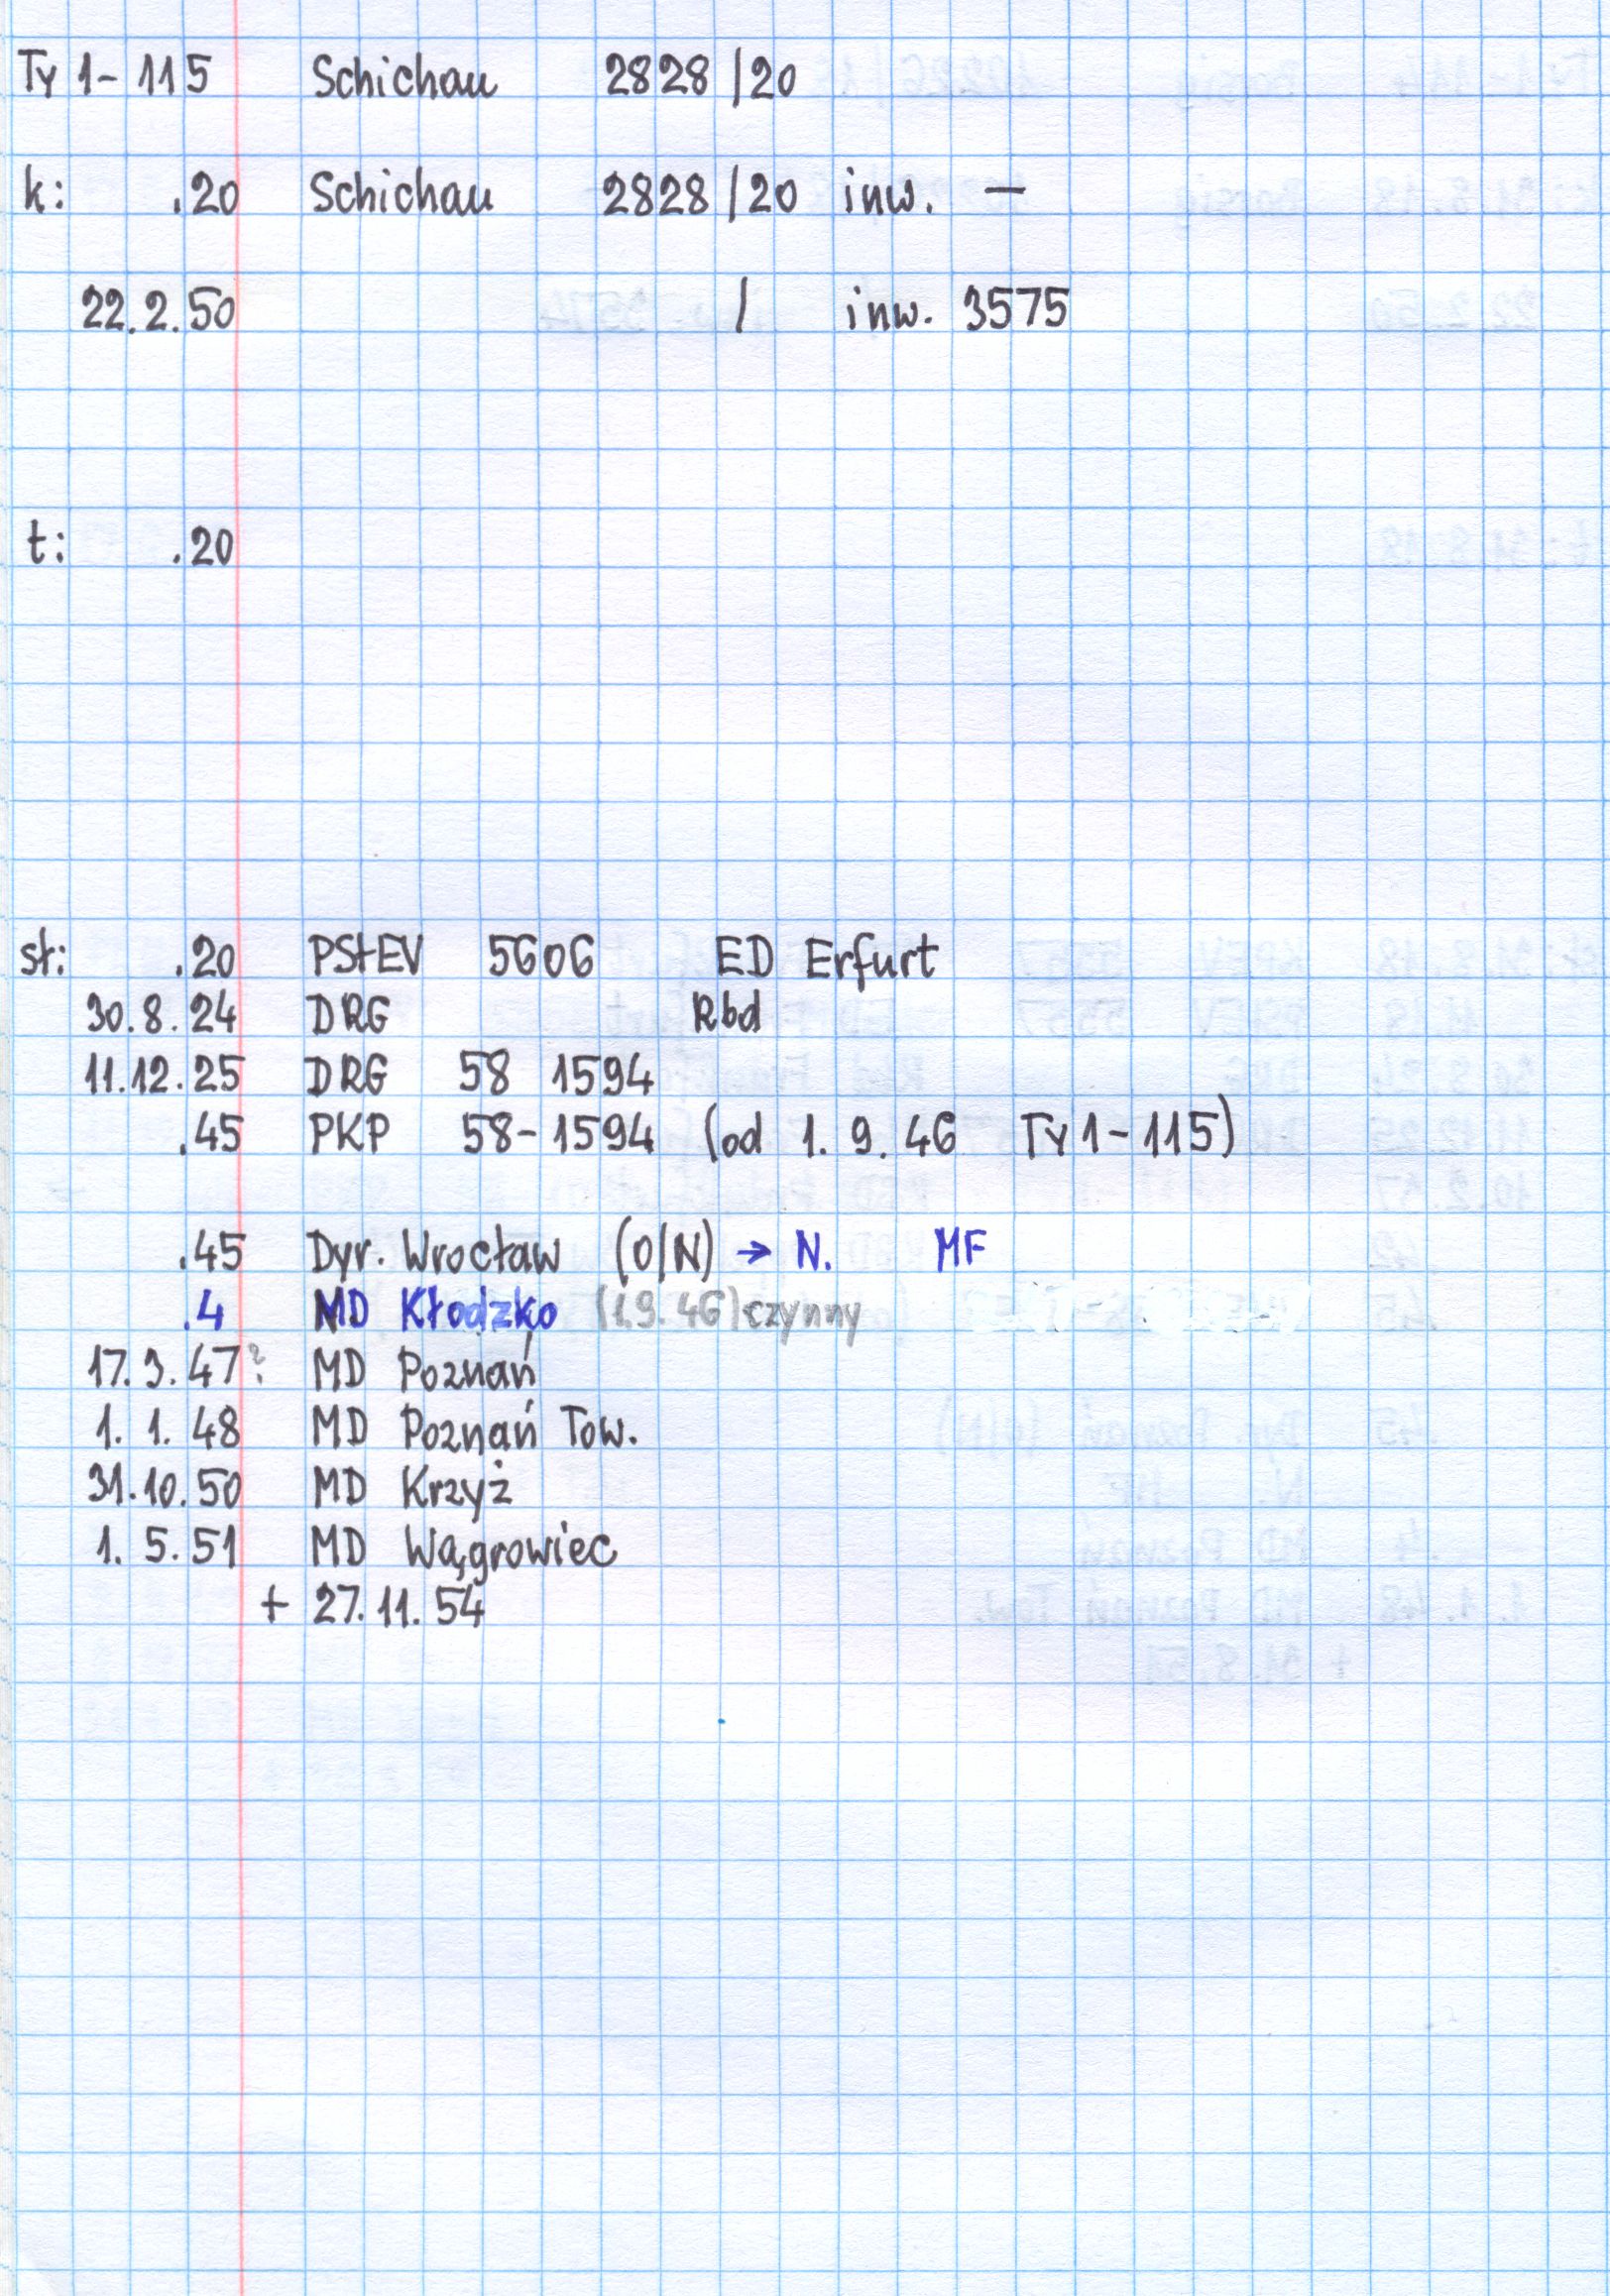 Ty 1-115 Schichau 2828/20
k: .20 Schichau 2828/20 inw. —
22.2.50 / inw. 3575
t: .20
st: .20 PStEV 5606 ED Erfurt
30.8.24 DRG Rbd
11.12.25 DRG 58 1594
.45 PKP 58-1594 (od 1.9.46 Ty 1-115)
.45 Dyr. Wrocław (O/N) → N. MF
.4 MD Kłodzko (1.9.46) czynny
17.3.47? MD Poznań
1.1.48 MD Poznań Tow.
31.10.50 MD Krzyż
1.5.51 MD Wągrowiec
+ 27.11.54